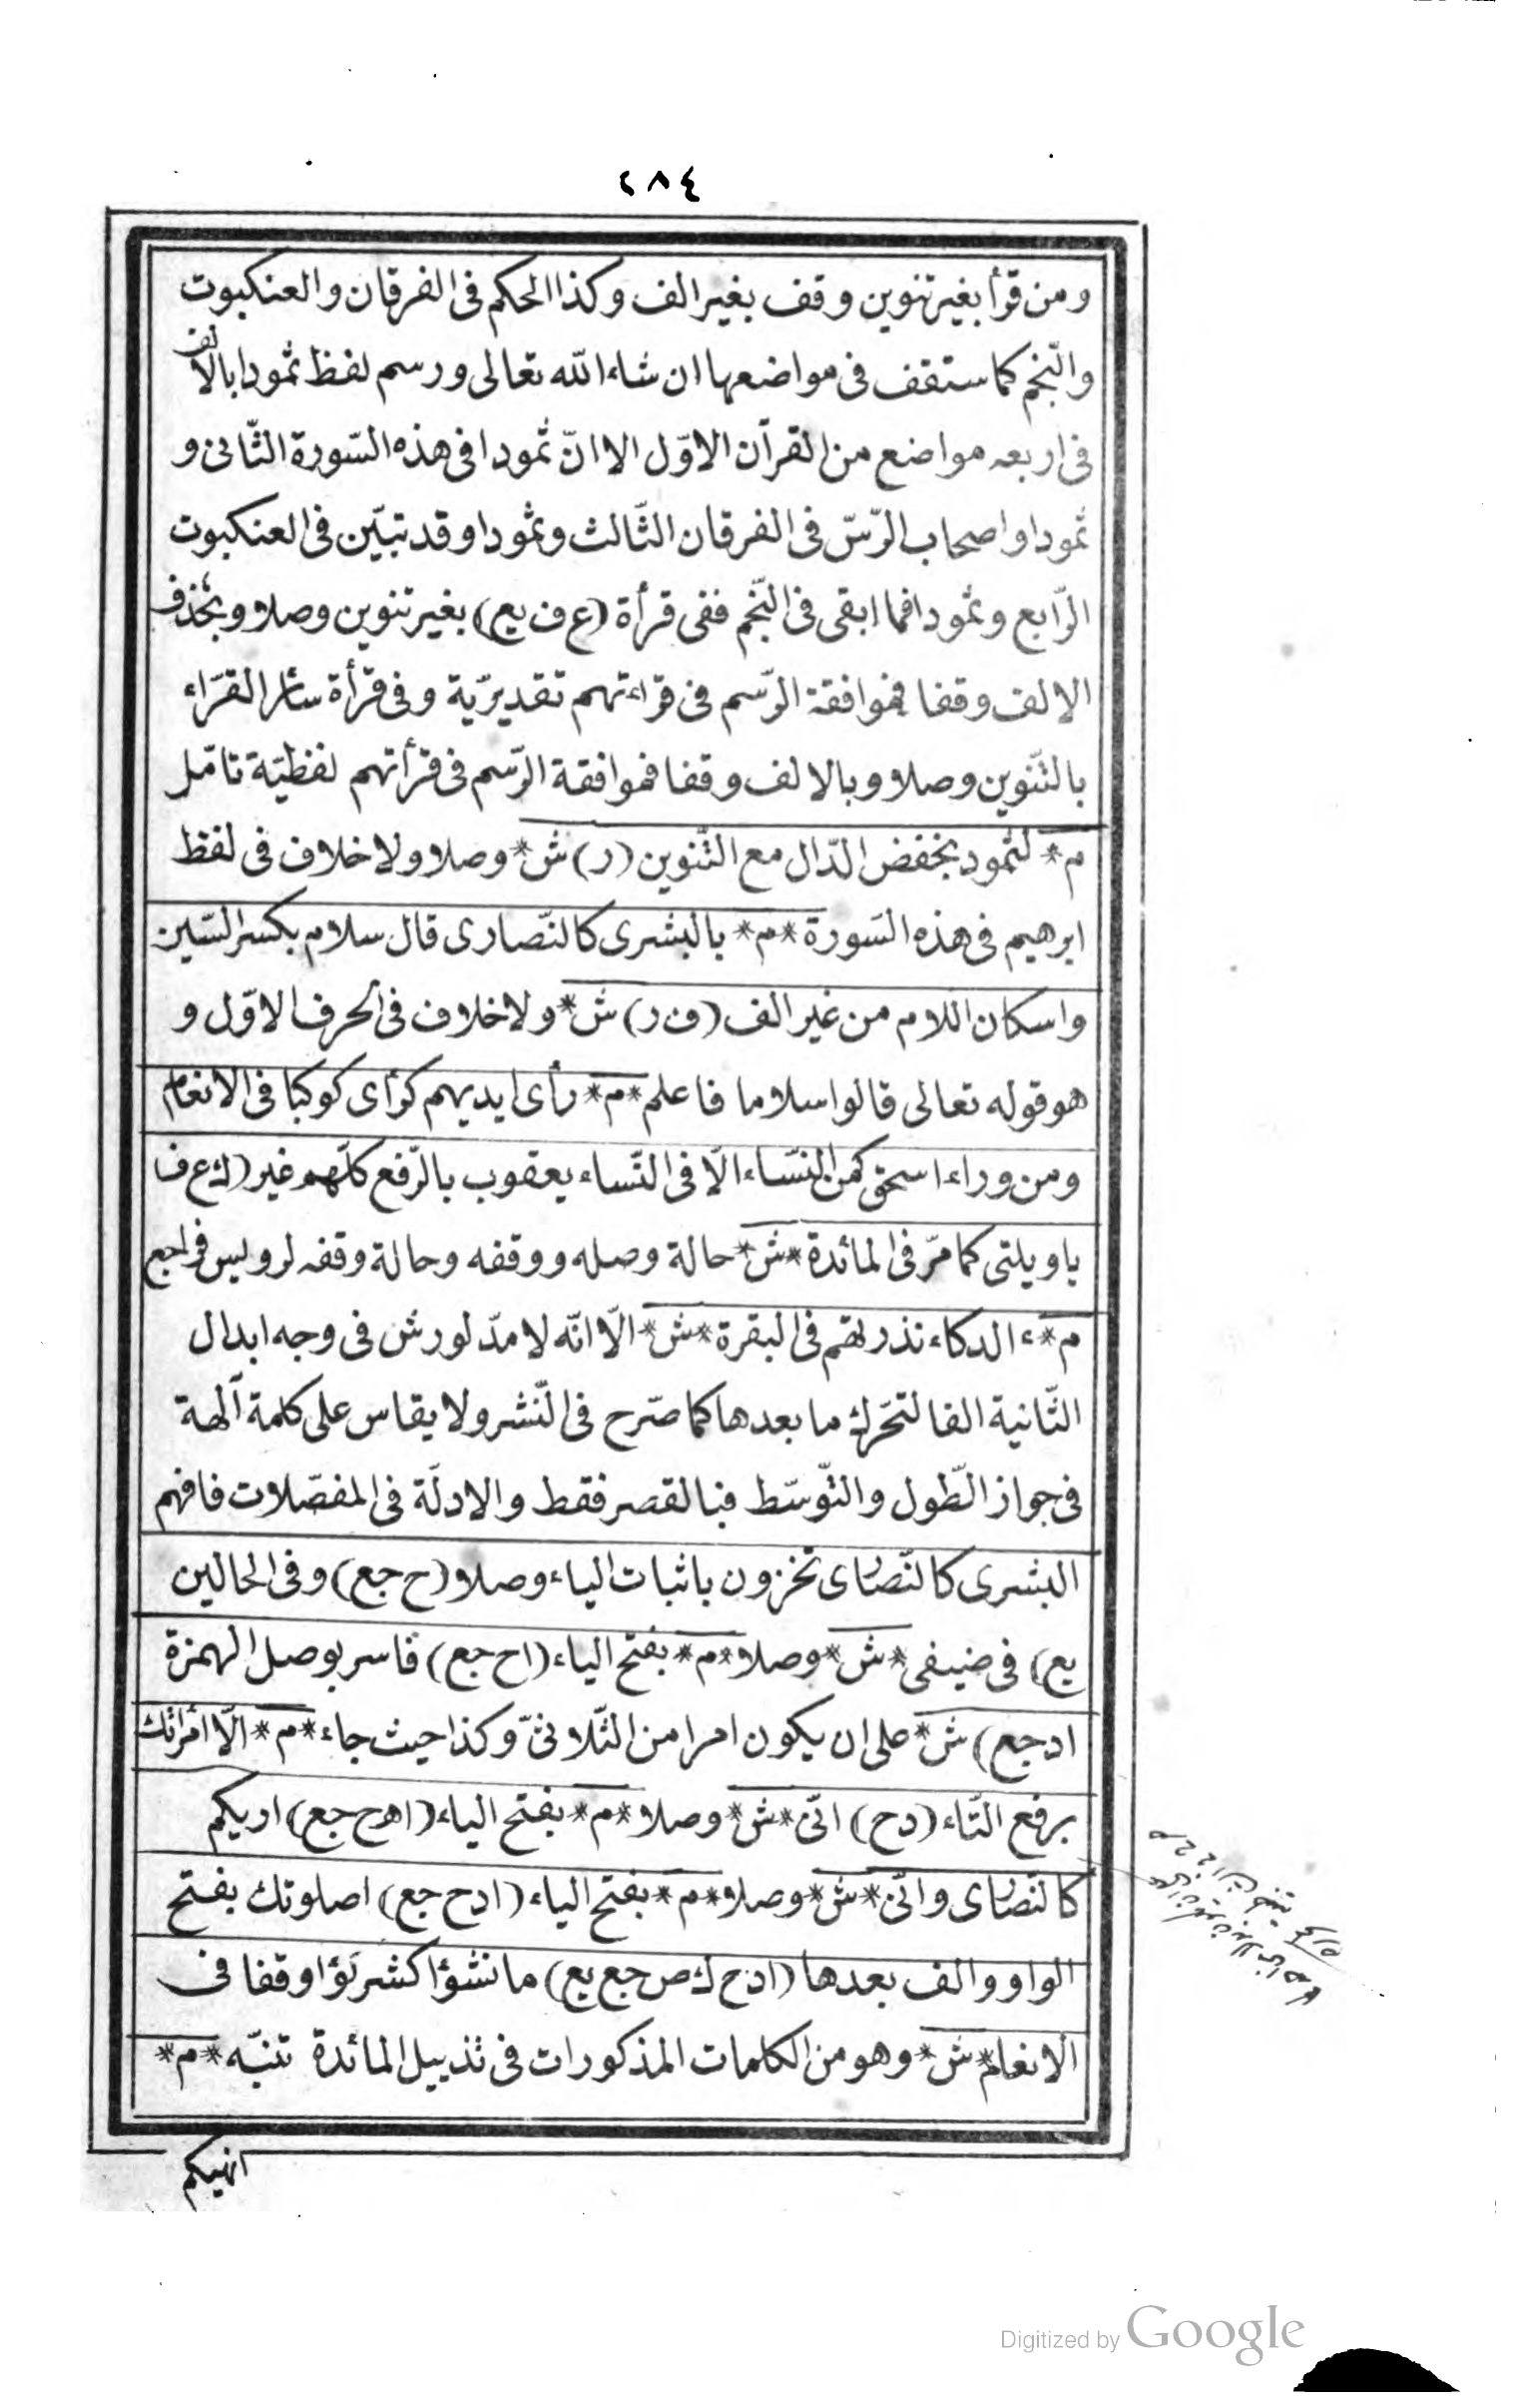 ٢٨٤
ومن قرأ بغير تنوين وقف بغير الف وكذا الحكم فى الفرقان والعنكبوت
والنّجم كما ستقف فى مواضعها ان شاء الله تعالى ورسم لفظ ثمودا بالالف
فى اربعه مواضع من القرآن الاوّل الا انّ ثمودا فى هذه السّورة الثّانى و
ثمودا واصحاب الرّسّ فى الفرقان الثّالث وثمودا وقد تبيّن فى العنكبوت
الرّابع وثمودا فما ابقى فى النّجم ففى قرأة (ع ف يع) بغير تنوين وصلا وبحذف
الالف وقفا فموافقة الرّسم فى قراءتهم تقديريّة وفى قرأة سائر القرّاء
بالتّنوين وصلا وبالالف وقفا فموافقة الرّسم فى قرأتهم لفظيّة تامّل
م* لثمود بخفض الدّال مع التّنوين (ر) ش* وصلا ولا خلاف فى لفظ
ابرهيم فى هذه السّورة *م* بالبشرى كالنّصارى قال سلام بكسر السّين
واسكان اللام من غير الف (ف ر) ش* ولا خلاف فى الحرف الاوّل و
هو قوله تعالى قالوا سلاما فاعلم *م* رأى ايديهم كرأى كوكبا فى الانعام
ومن وراء اسحق كمن النّساء الّا فى النّساء يعقوب بالرّفع كلّهم غير (ك ع ف
ياويلتى كما مرّ فى المائدة *ش* حالة وصله ووقفه وحالة وقفه لرويس فراجع
م* ء الد كاء نذرتهم فى البقرة *ش* الّا انّه لا مدّ لورش فى وجه ابدال
الثّانية الفا لتحرّك ما بعدها كما صرّح فى النّشر ولا يقاس على كلمة آلهة
فى جواز الطّول والتّوسّط فبالقصر فقط والادلّة فى المفصّلات فافهم
البشرى كالنّصارى تخزون باثبات الياء وصلا (ح جع) وفى الحالين
يع) فى ضيفى *ش* وصلا *م* بفتح الياء (اح جع) فاسر بوصل الهمزة
اد جع) ش* على ان يكون امرا من الثّلاثىّ وكذا حيث جاء *م* الّا امرأتك
برفع التّاء (دح) انّى *ش* وصلا *م* بفتح الياء (اهح جع) اريكم
كالنّصارى وانّى *ش* وصلا *م* بفتح الياء (ادح جع) اصلوتك بفتح
الواو والف بعدها (ادح ك ص جع يع) ما نشؤا كشركؤا وقفا فى
الانعام *ش* وهو من الكلمات المذكورات فى تذييل المائدة تنبّه *م*
انهيكم
Digitized by Google